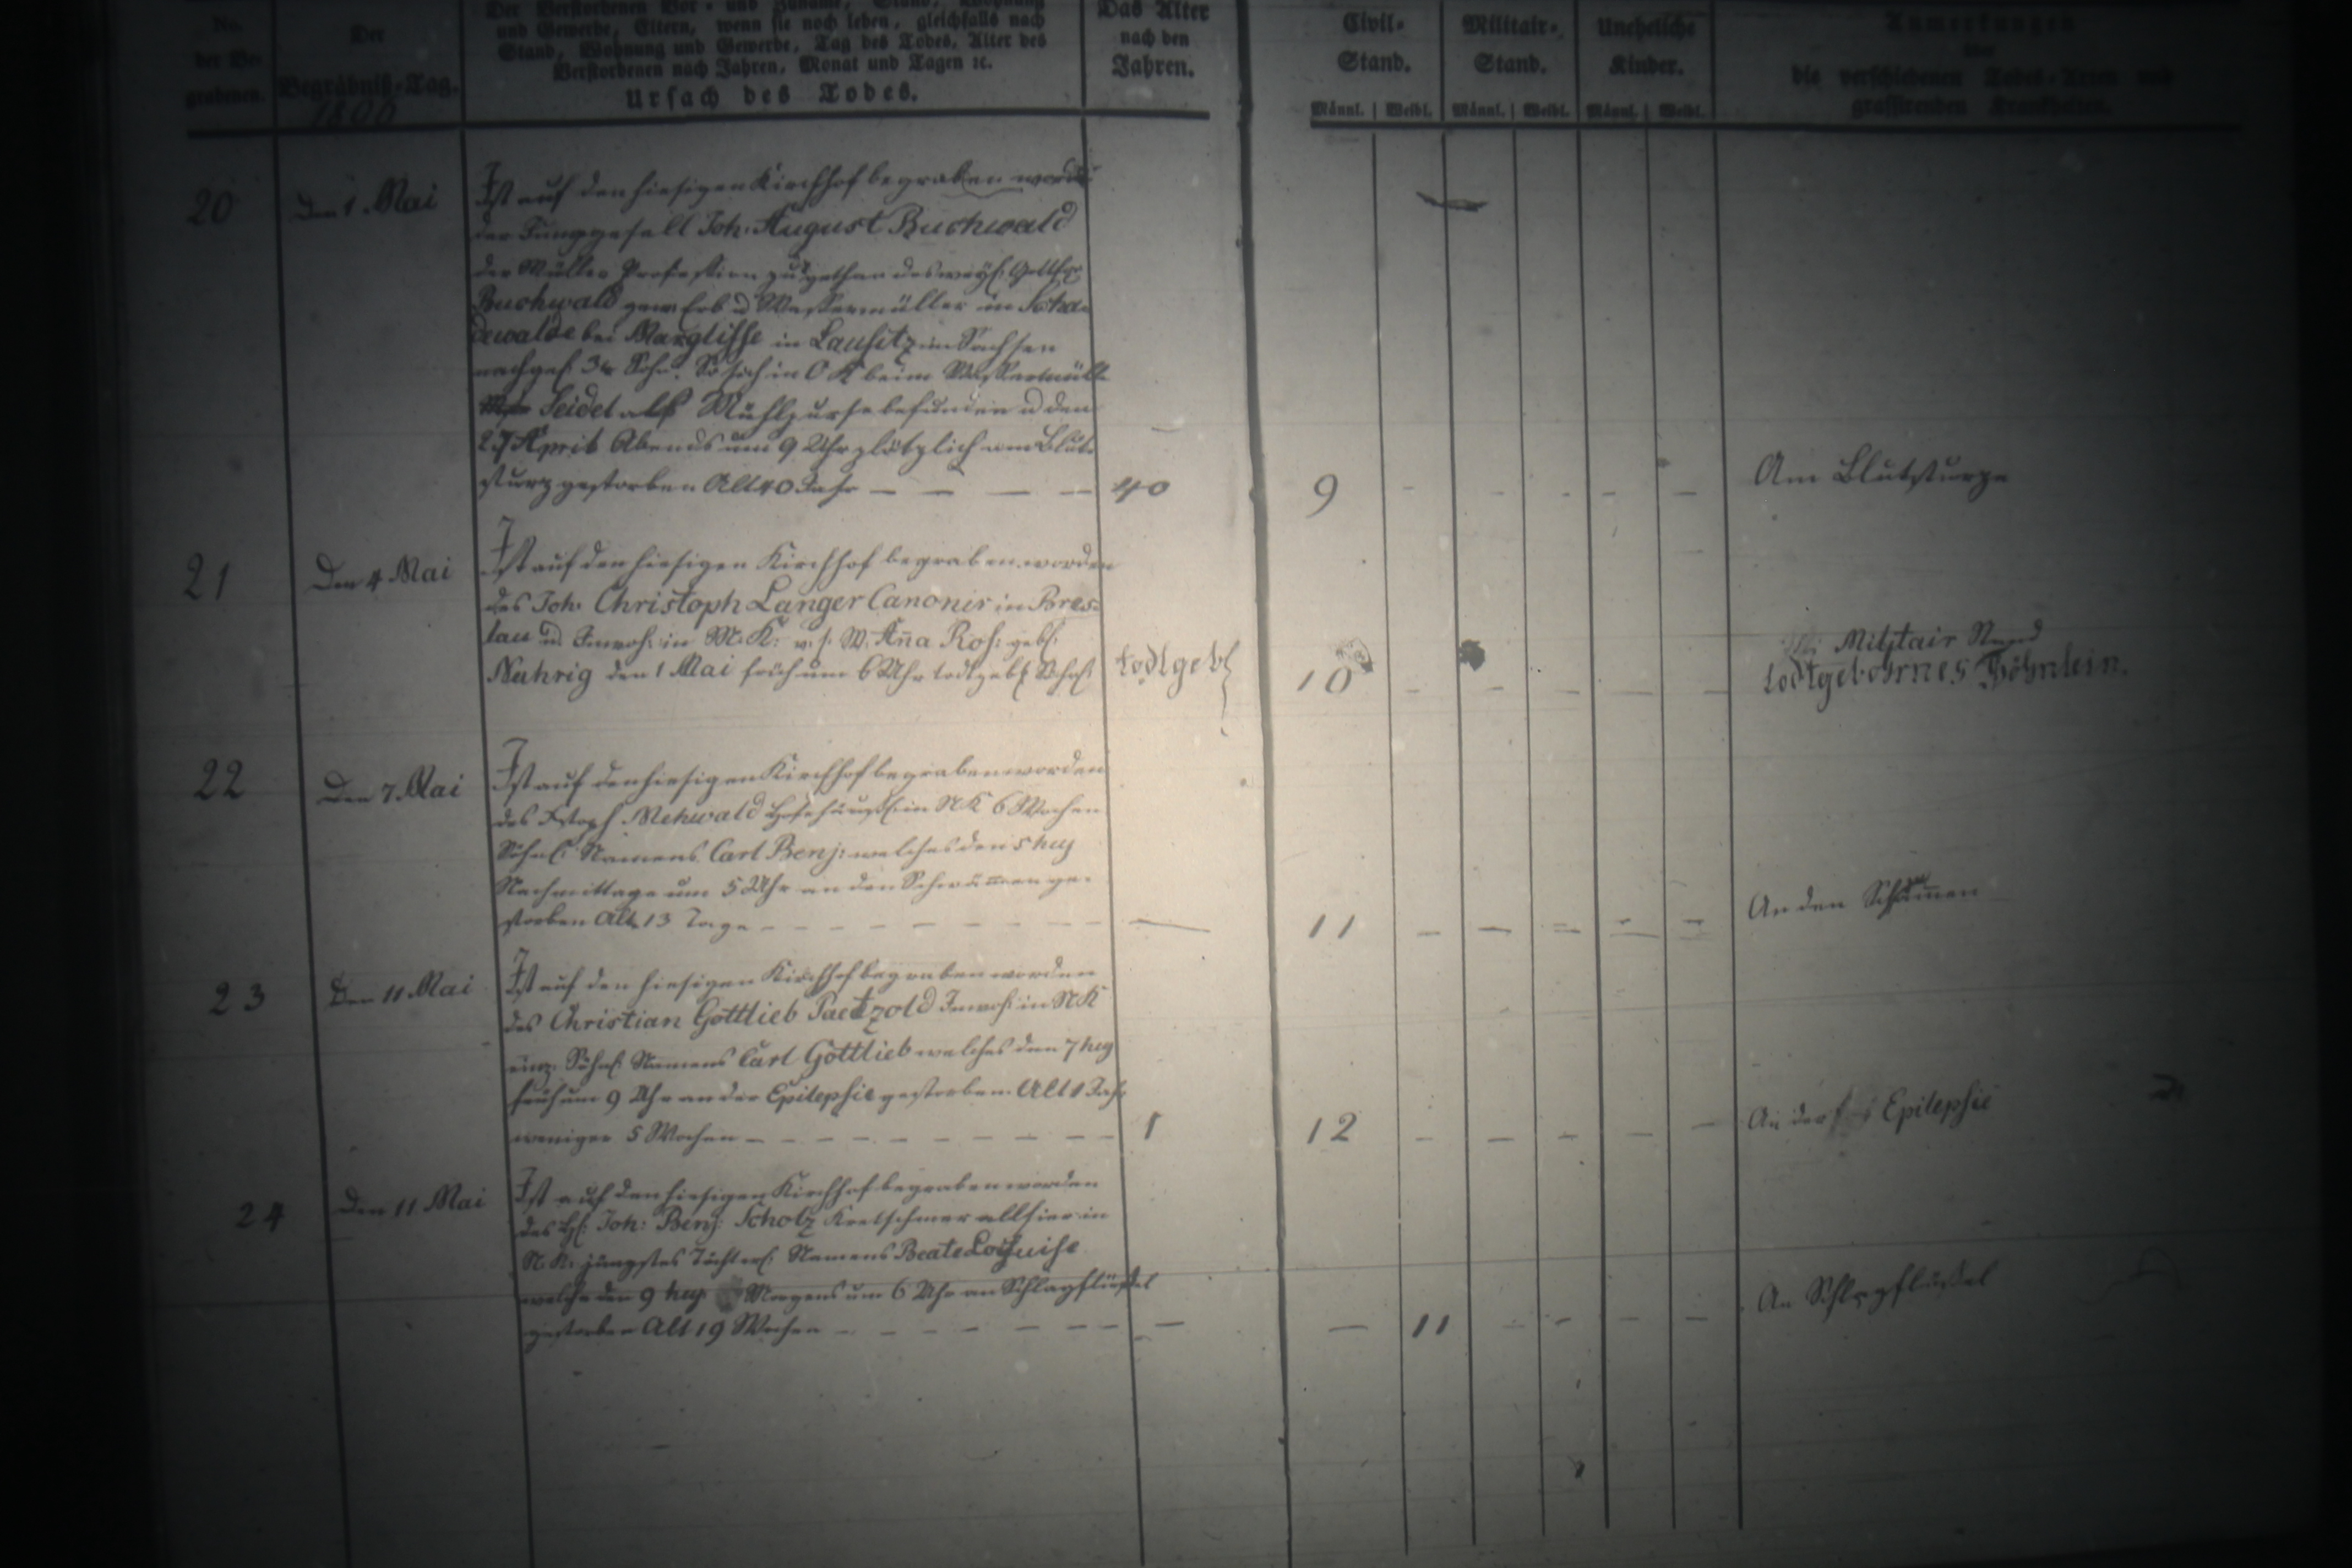 No. der Begrabenen.
Der Begräbniß-Tag.
Der Verstorbenen Vor- und Zuname, Stand, Wohnung
und Gewerbe, Eltern, wenn sie noch leben, gleichfalls nach
Stand, Wohnung und Gewerbe, Tag des Todes, Alter des
Verstorbenen nach Jahren, Monat und Tagen ꝛc.
Ursach des Todes.
Das Alter
nach den
Jahren.
Civil-
Stand.
Militair-
Stand.
Uneheliche
Kinder.
Männl. Weibl. Männl. Weibl. Männl. Weibl.
Anmerkungen
über
die verschiedenen Todes-Arten und
grassirenden Krankheiten.
20
Den 1. Mai
Ist auf den hiesigen Kirchhof begraben worden
der Junggesell Joh: August Buchwald
der Müller Profession zugethan des Gottfr.
Buchwald gew. Erb u Wassermüller in Scha-
dewalde bei Marglisse in Lausitz in Sachsen
nachgel 3tr Sohn. So sich in O K beim Wassermüll
Seidel alß befunden u den
27 April Abends um 9 Uhr plötzlich am Blut-
sturz gestorben Alt 40 Jahr – – – –
40
9 - - - - -
Am Blutsturze
21
Den 4 Mai
Ist auf den hiesigen Kirchhof begraben worden
des Joh: Christoph Langer Canonir in Bres-
lau u Inwoh: in M. K: v. s. W. An̄a Ros: geb:
Nührig den 1 Mai früh um 6 Uhr todtgeb Söhnl
todtgeb
10 - - - - -
Militair Stand
todtgebohrnes Söhnlein.
22
Den 7. Mai
Ist auf den hiesigen Kirchhof begraben worden
des Mehwald in NK 6 Wochen
Söhnl: Namens Carl Benj: welches den 5 huj
Nachmittage um 5 Uhr an den Schwäm̄en ge-
storben Alt 13 Tage – – – – – – – –
—
11 - - - - -
An den Schwäm̄en
23
Den 11 Mai
Ist auf den hiesigen Kirchhof begraben worden
des Christian Gottlieb Paetzold Inwoh: in NK
einz. Söhnl: Namens Carl Gottlieb welches den 7 huj
früh um 9 Uhr an der Epilepsie gestorben Alt 1 Jahr
weniger 5 Wochen – – – – – – – – –
1
12 - - - - -
An der Epilepsie
24
Den 11. Mai
Ist auf den hiesigen Kirchhof begraben worden
des Joh: Benj: Scholz Kretschmer allhier in
N. K. jüngstes Töchterl: Namens Beate Louise
welche den 9 huj Morgens um 6 Uhr an Schlagflüssel
gestorben Alt 19 Wochen – – – – – – –
—
— 11 - - - -
An Schlagflüssel